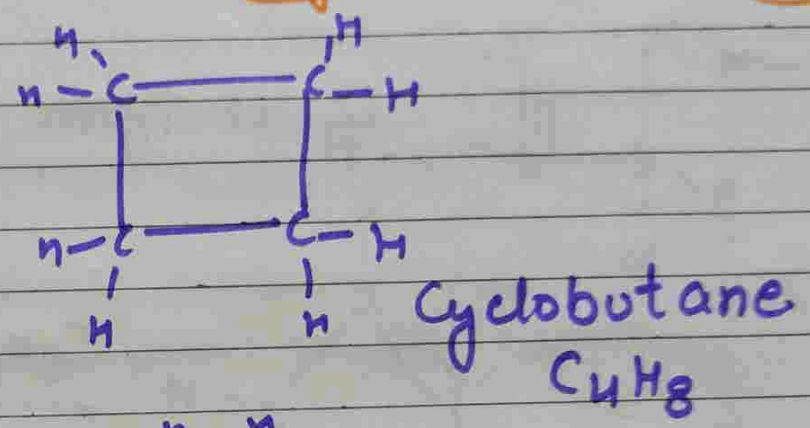 H H
H - C - C - H
H - C - C - H
H H
Cyclobutane
C4H8